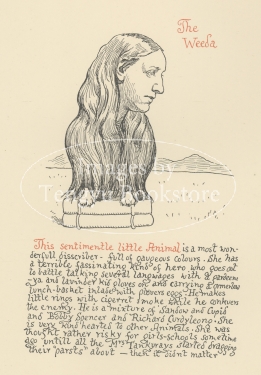 The
Weeda
Images by
Tennyson Bookstore
This sentimentle little Animal is a most won-
derfull disscriber - full of gaugeous colours. She has
a terrible fassinating kind of hero who goes out
to battle talking several languages with
ya and lavinder kid gloves on, and carrying a
lunch-basket inlaid with plovers eggs. He makes
little rings with cigerret smoke while he conkuers
the enemy. He is a mixture of Sandow and Cupid
and Bobby Spencer and Richard Curdyleone. She
is very kind hearted to other Animals. She was
thought rather risky for girls-schools some time
ago untill all the Mrs Tankyrays started dragging
their "parsts" about – then it didnt matter